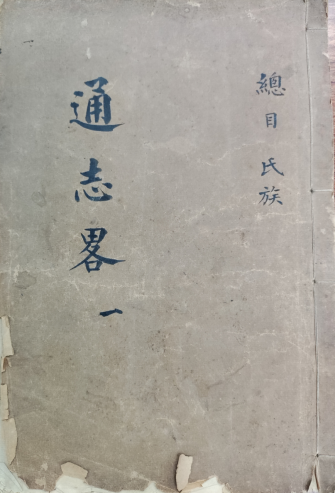 總目 氏族
通志畧 一